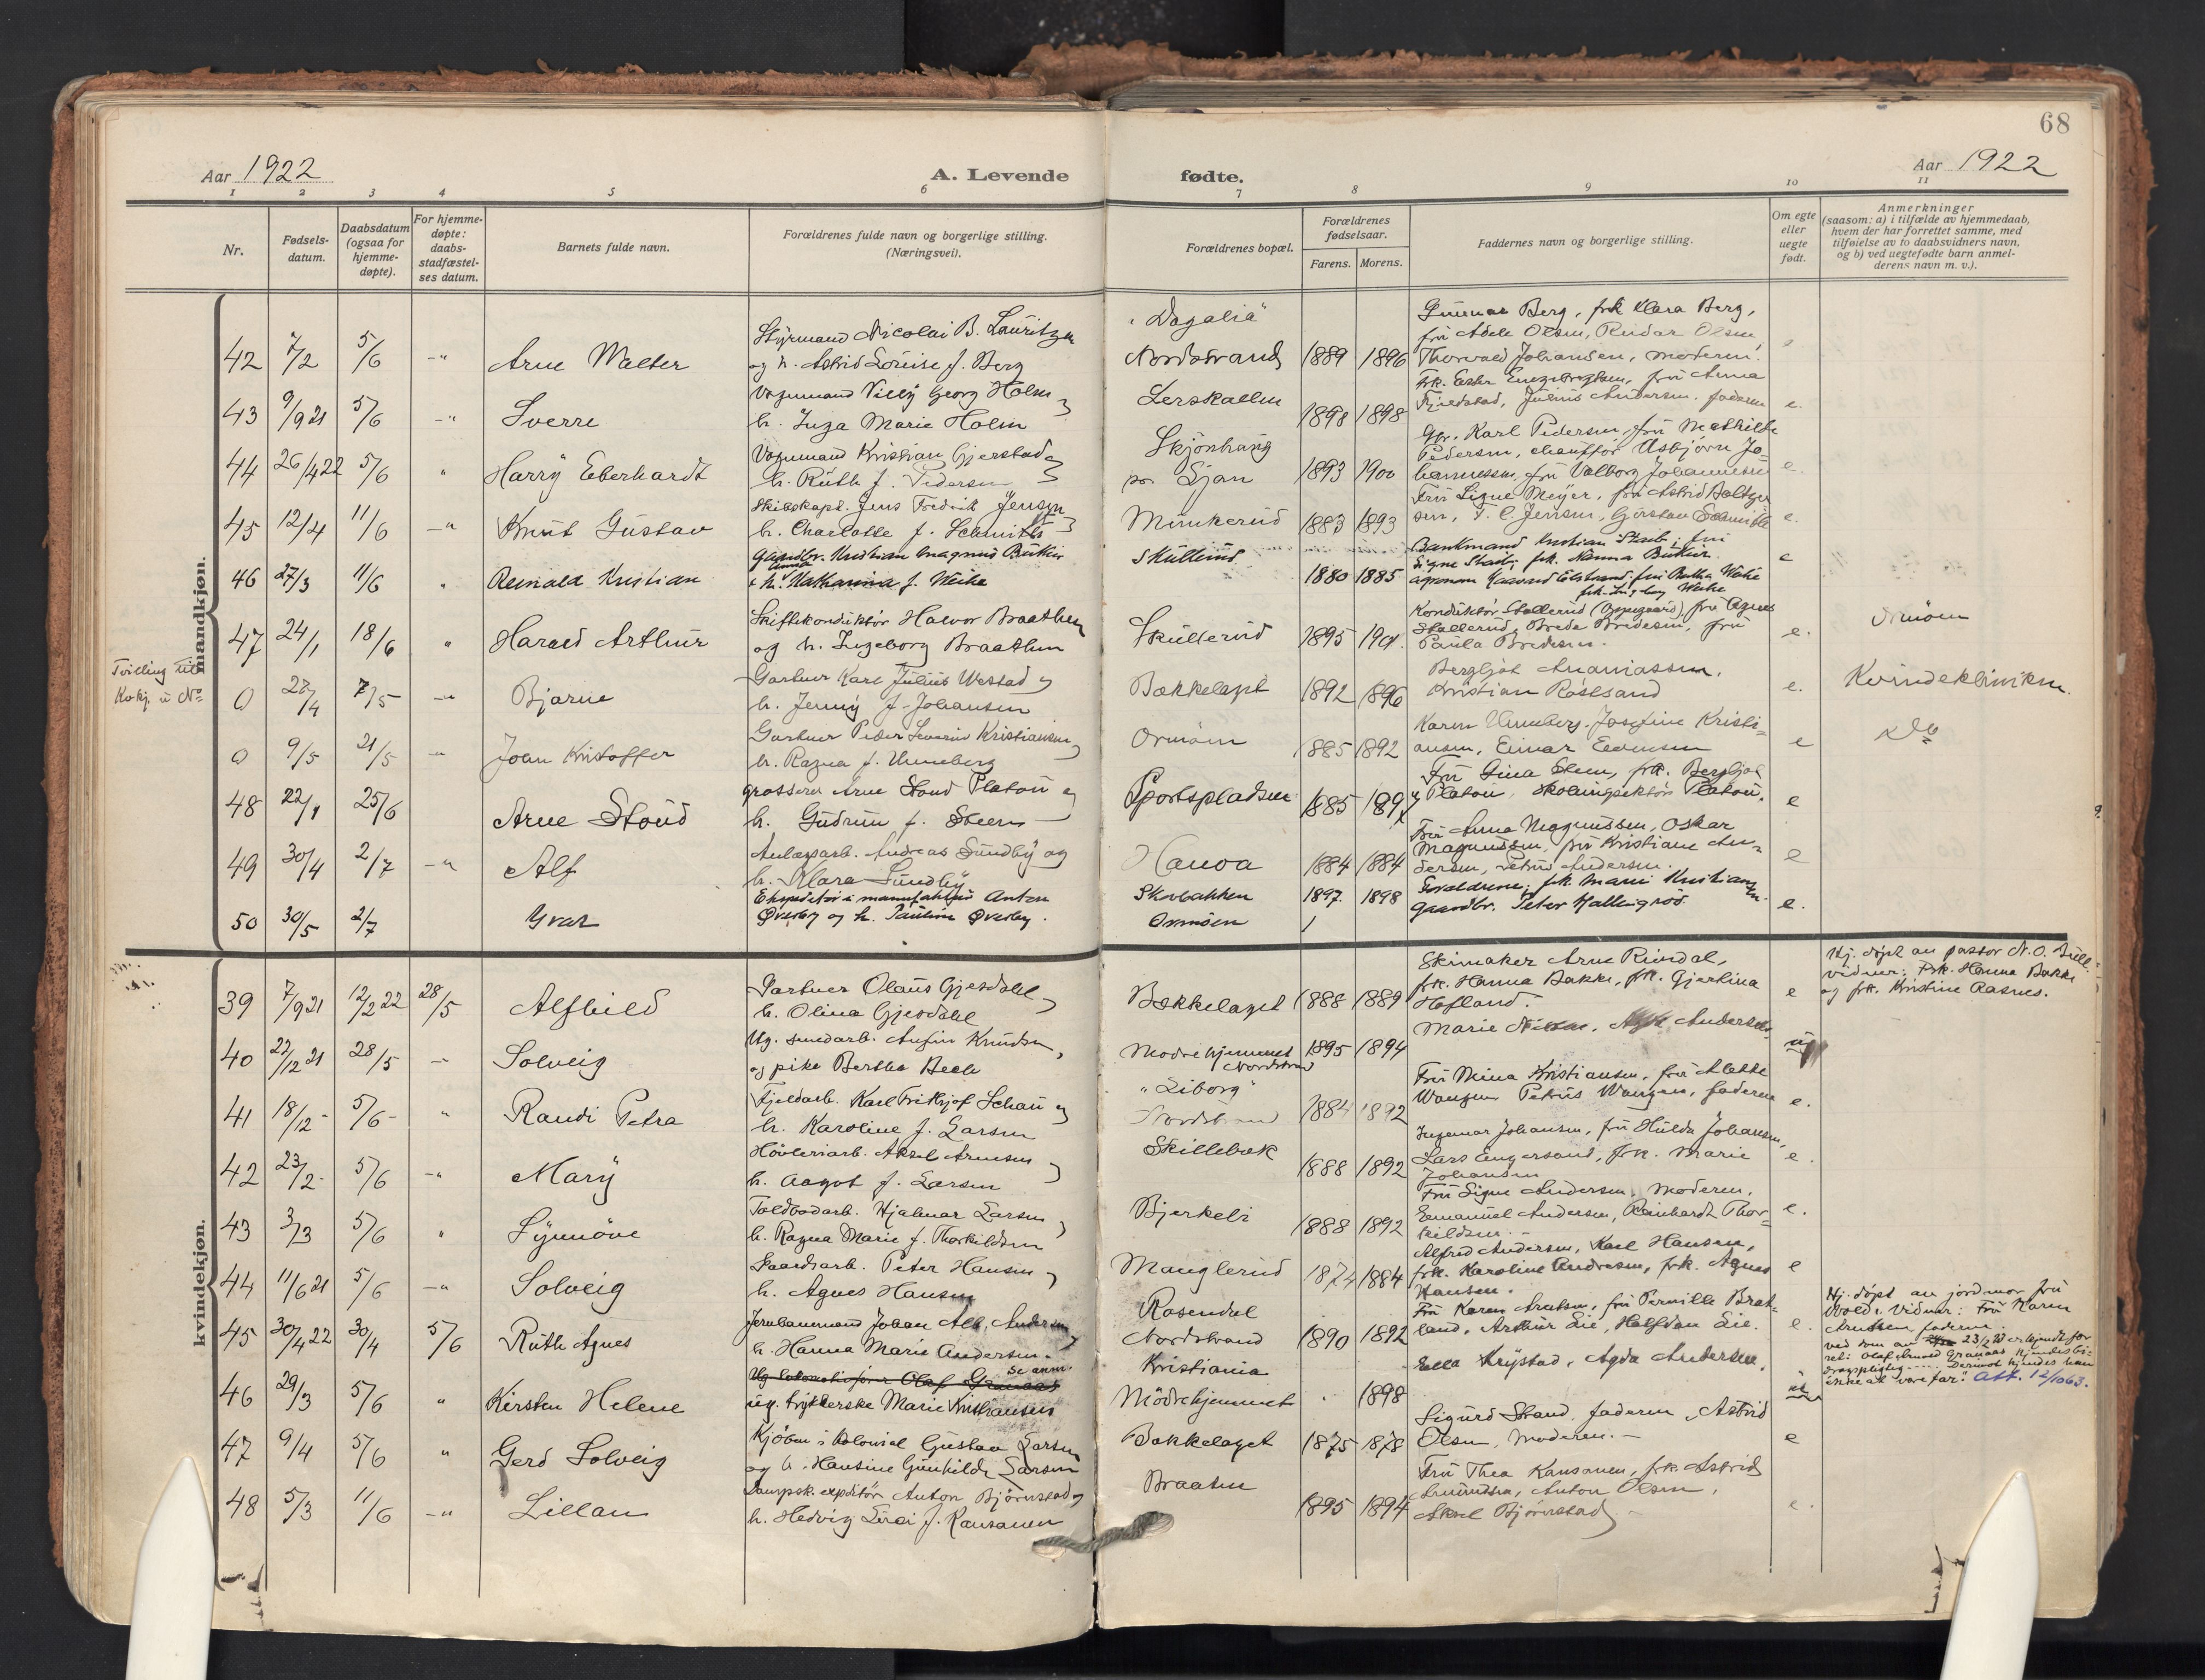 68
Aar 1922
A. Levende
fødte.
Aar 1922
1 2 3 4 5 6 7 8 9 10 11
Nr.
Fødsels-
datum.
Daabsdatum
(ogsaa for
hjemme-
døpte).
For hjemme-
døpte:
daabs-
stadfæstel-
ses datum.
Barnets fulde navn.
Forældrenes fulde navn og borgerlige stilling.
(Næringsvei).
Forældrenes bopæl.
Forældrenes
fødselsaar.
Farens. Morens.
Faddernes navn og borgerlige stilling.
Om egte
eller
uegte
født.
Anmerkninger
(saasom: a) i tilfælde av hjemmedaab,
hvem der har forrettet samme, med
tilføielse av to daabsvidners navn,
og b) ved uegtefødte barn anmel-
derens navn m. v.).
mandkjøn.
42 7/2 5/6 -"- Arne Walter
Styrmand Nicolai B. Lauritzen
og h. Astrid Louise f. Berg
"Dagalia"
Nordstrand 1889 1896
Gunnar Berg, frk Klara Berg,
fru Adele Olsen, Reidar Olsen,
Thorvald Johansen, moderen.
43 9/9 21 5/6 -"- Sverre
Vognmand Villy Georg Holm og
h. Inga Marie Holm
Lerskallen 1898 1898
frk. Ester Engebregtsen, fru Anna
Fjeldstad, Julius Andersen, faderen e.
44 26/4 22 5/6 " Harry Eberhardt
Vognmand Kristian Gjerstad og
h. Ruth f. Pedersen
Skjönhaug
pr. Ljan 1893 1900
Gbr. Karl Pedersen, fru Mathilde
Pedersen, chauffør Asbjørn Jo-
hannessen, fru Valborg Johannessen e.
45 12/4 11/6 -"- Knut Gustav
Skibskapt. Jens Fredrik Jensen
h. Charlotte f. Schmidt
Munkerud 1883 1893
Fru Signe Meyer, fru Astrid
T. C. Jensen, Gustav e.
46 27/3 11/6 " Reinald Kristian
Gaardbr. Kristian Magnus
Anna
& h. Katharina f. Weike
Skullerud 1880 1885
Bankmand Kristian Stub, fru
Signe Stub, frk. Nanna
e
47 24/1 18/6 " Harald Arthur
Skiftekonduktør Halvor Braathen
og h. Ingeborg Braathen
Skullerud 1895 1901.
Konduktør Stallerud (Oppegaard), fru Agnes
Stallerud, Brede Bredesen, fru
Paula Bredesen.
e. Ormöen
Tvilling til
Kvkj. u No
0 27/4 7/5 -"- Bjarne
Gartner Karl Julius Westad og
h. Jenny f. Johansen
Bækkelaget 1892 1896
Bergljot Ananiassen,
Kristian Roselsand
e. Kvindeklinikken.
0 9/5 21/5 -"- Joan Kristoffer
Gartner Peder Severin Kristiansen og
h. Ragna f. Unneberg
Ormöen 1885 1892
Karen Unneberg. Josefine Kristi-
ansen, Einar Evensen
e do
48 22/1 25/6 Arne Stoud
Grosserer Arne Stoud Platou og
h. Gudrun f. Steen
Sportspladsen 1885 1897
Fru Gina Steen, frk. Bergljot
Platou, Skoleinspektör Platou. e
49 30/4 2/7 -"- Alf
Anlægsarb. Andreas Sundby og
h. Klara Sundby
Hauoa 1884 1884
Fru Anna Magnussen, Oskar
Magnussen, fru Kristiane An-
dersen, Petrus Andersen. e
50 30/5 2/7 Ivar
Ekspeditør i manufaktur Anton
Øverby og h. Pauline Øverby.
Skovbakken
Ormöen 1897 1898
Forældrene, frk. Marie Kristiansen.
Gaardbr. Peter Hallingröd e.
kvindekjøn.
39 7/9 21 12/2 22 28/5 Alfhild
Gartner Olaus Gjesdahl og
h. Olina Gjesdahl
Bækkelaget 1888 1889
Skimaker Arne Rindal,
frk. Hanna Bakke, frk. Gjertina
Hofland. e
Hj. döpt av pastor N. O. Bull.
vidner: Frk. Hanna Bakke
og frk. Kristine Aasnes.
40 22/12 21 28/5 - Solveig
Ug. smedarb. Anfin Knudsen,
og pike Bertha Bech
Mödrehjemmet
Nordstrand 1895 1894
Marie Nilsen, Andersen, ug
41 18/12 - 5/6 - " Randi Petra
Fjeldarb. Karl Fritjof Schau og
h. Karoline f. Larsen
"Liborg"
Nordstrand 1884 1892
Fru Mina Kristiansen, fru Alette
Wangen Petrus Wangen, faderen e.
42 23/2 - 5/6 -"- Mary
Hövleriarb. Aksel Arnesen og
h. Aagot f. Larsen
Skillebæk 1888 1892
Ingemar Johansen, fru Hulda Johansen,
Lars Engersand, frk. Marie
Johansen e.
43 3/3 5/6 " Synnöve
Toldbodarb. Hjalmar Larsen og
h. Ragna Marie f. Thorkildsen
Bjerkeli 1888 1892
Fru Signe Andersen, Moderen,
Emanuel Andersen, Reinhardt Thor-
kildsen. e.
44 11/6 21 5/6 -"- Solveig
Gaardsarb. Peter Hansen og
h. Agnes Hansen
Manglerud 1874 1884
Alfred Andersen, Karl Hansen,
frk. Karoline Andresen, frk. Agnes
Hansen. e
45 30/4 22 30/4 5/6 Ruth Agnes
Jernbanemand Johan Alb. Andersen
h. Hanna Marie Andersen.
Rosendal
Nordstrand 1890 1892
Fru Karen Arntsen, fru Pernille Brat-
land, Arthur Lie, Halfdan Lie. e.
Hj. döpt av jordmor fru
Wold. Vidner: Fru Karen
Arntsen, faderen.
46 29/3 5/6 " Kirsten Helene
Se anm.
Ug. lokomotivfyrer Olaf Granaas
ug. trykkerske Marie Kristiansen
Kristiania
Mödrehjemmet " 1898
Ella Krystad, Agda Andersen.
47 9/4 5/6 " Gerd Solveig
Kjöbm i kolonial Gustav Larsen
og h. Hansine Gunhilde Larsen
Bækkelaget 1875 1878
Sigurd Strand, faderen, Astrid
Olsen, Moderen. - e
48 5/3 11/6 -"- Lillan
Dampsk. expeditör Anton Björnstad og
h. Hedvig f. Kansanen
Braaten 1895 1894
Fru Thea Kansanen, frk. Astrid
Anton Olsen,
Aksel Bjørnstad. - e.